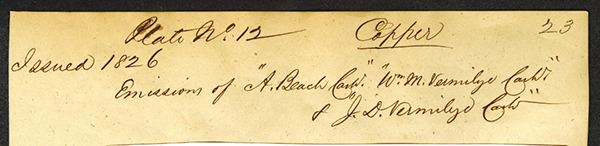 Plate No. 12 Copper 23
Issued 1826
Emissions of "A. Beach Cash." "Wm. M. Vermilye Cash."
& "J. D. Vermilye Cash"